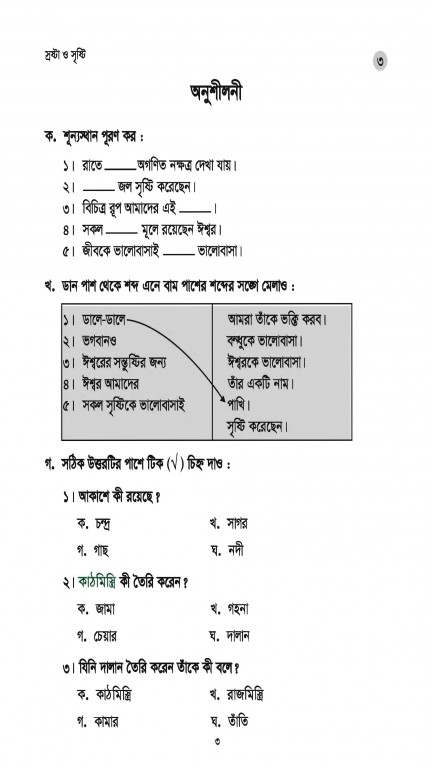 স্রষ্টা ও সৃষ্টি
৩
অনুশীলনী
ক. শূন্যস্থান পূরণ কর :
১। রাতে ______ অগণিত নক্ষত্র দেখা যায়।
২। ______ জল সৃষ্টি করেছেন।
৩। বিচিত্র রূপ আমাদের এই ______ ।
৪। সকল ______ মূলে রয়েছেন ঈশ্বর।
৫। জীবকে ভালোবাসাই ______ ভালোবাসা।
খ. ডান পাশ থেকে শব্দ এনে বাম পাশের শব্দের সঙ্গে মেলাও :
১। ডালে-ডালে আমরা তাঁকে ভক্তি করব।
২। ভগবানও বন্ধুকে ভালোবাসা।
৩। ঈশ্বরের সন্তুষ্টির জন্য ঈশ্বরকে ভালোবাসা।
৪। ঈশ্বর আমাদের তাঁর একটি নাম।
৫। সকল সৃষ্টিকে ভালোবাসাই পাখি।
সৃষ্টি করেছেন।
গ. সঠিক উত্তরটির পাশে টিক (√) চিহ্ন দাও :
১। আকাশে কী রয়েছে?
ক. চন্দ্র খ. সাগর
গ. গাছ ঘ. নদী
২। কাঠমিস্ত্রি কী তৈরি করেন?
ক. জামা খ. গহনা
গ. চেয়ার ঘ. দালান
৩। যিনি দালান তৈরি করেন তাঁকে কী বলে?
ক. কাঠমিস্ত্রি খ. রাজমিস্ত্রি
গ. কামার ঘ. তাঁতি
৩